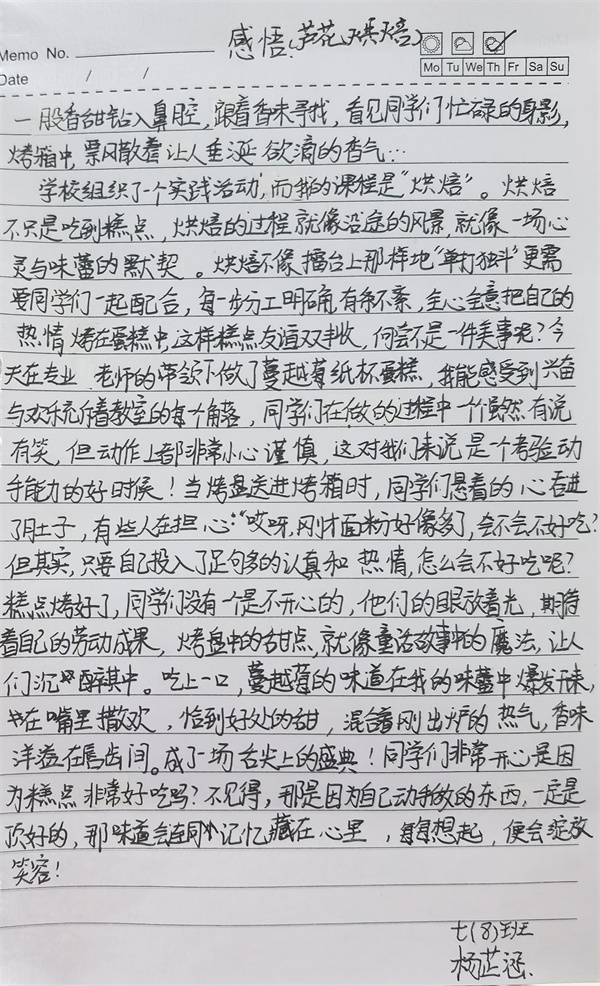 Memo No.
感悟(芦花烘焙)
Date / /
Mo Tu We Th Fr Sa Su
一股香甜钻入鼻腔,跟着香味寻找,看见同学们忙碌的身影,
烤箱中,飘散着让人垂涎欲滴的香气…
学校组织了一个实践活动,而我的课程是“烘焙”。烘焙
不只是吃到糕点,烘焙的过程就像沿途的风景,就像一场心
灵与味蕾的默契。烘焙不像擂台上那样地“单打独斗”更需
要同学们一起配合,每一步分工明确,有条不紊,全心全意把自己的
热情烤在蛋糕中,这样糕点友谊双丰收,何尝不是一件美事呢?今
天在专业老师的带领下做了蔓越莓纸杯蛋糕,我能感受到兴奋
与欢乐充斥着教室的每个角落,同学们在做的过程中一个个虽然有说
有笑,但动作上都非常小心谨慎,这对我们来说是个考验动
手能力的好时候!当烤盘送进烤箱时,同学们悬着的心吞进
了肚子,有些人在担心:“哎呀,刚才面粉好像多了,会不会不好吃?
但其实,只要自己投入了足够多的认真和热情,怎么会不好吃呢?
糕点烤好了,同学们没有一个是不开心的,他们的眼放着光,期待
着自己的劳动成果,烤盘中的甜点,就像童话故事中的魔法,让人
们沉醉其中。吃上一口,蔓越莓的味道在我的味蕾中爆发开来,
在嘴里撒欢,恰到好处的甜,混合着刚出炉的热气,香味
洋溢在唇齿间。成了一场舌尖上的盛典!同学们非常开心是因
为糕点非常好吃吗?不见得,那是因为自己动手做的东西,一定是
顶好的,那味道会连同记忆藏在心里,每每想起,便会绽放
笑容!
七(8)班
杨芷涵